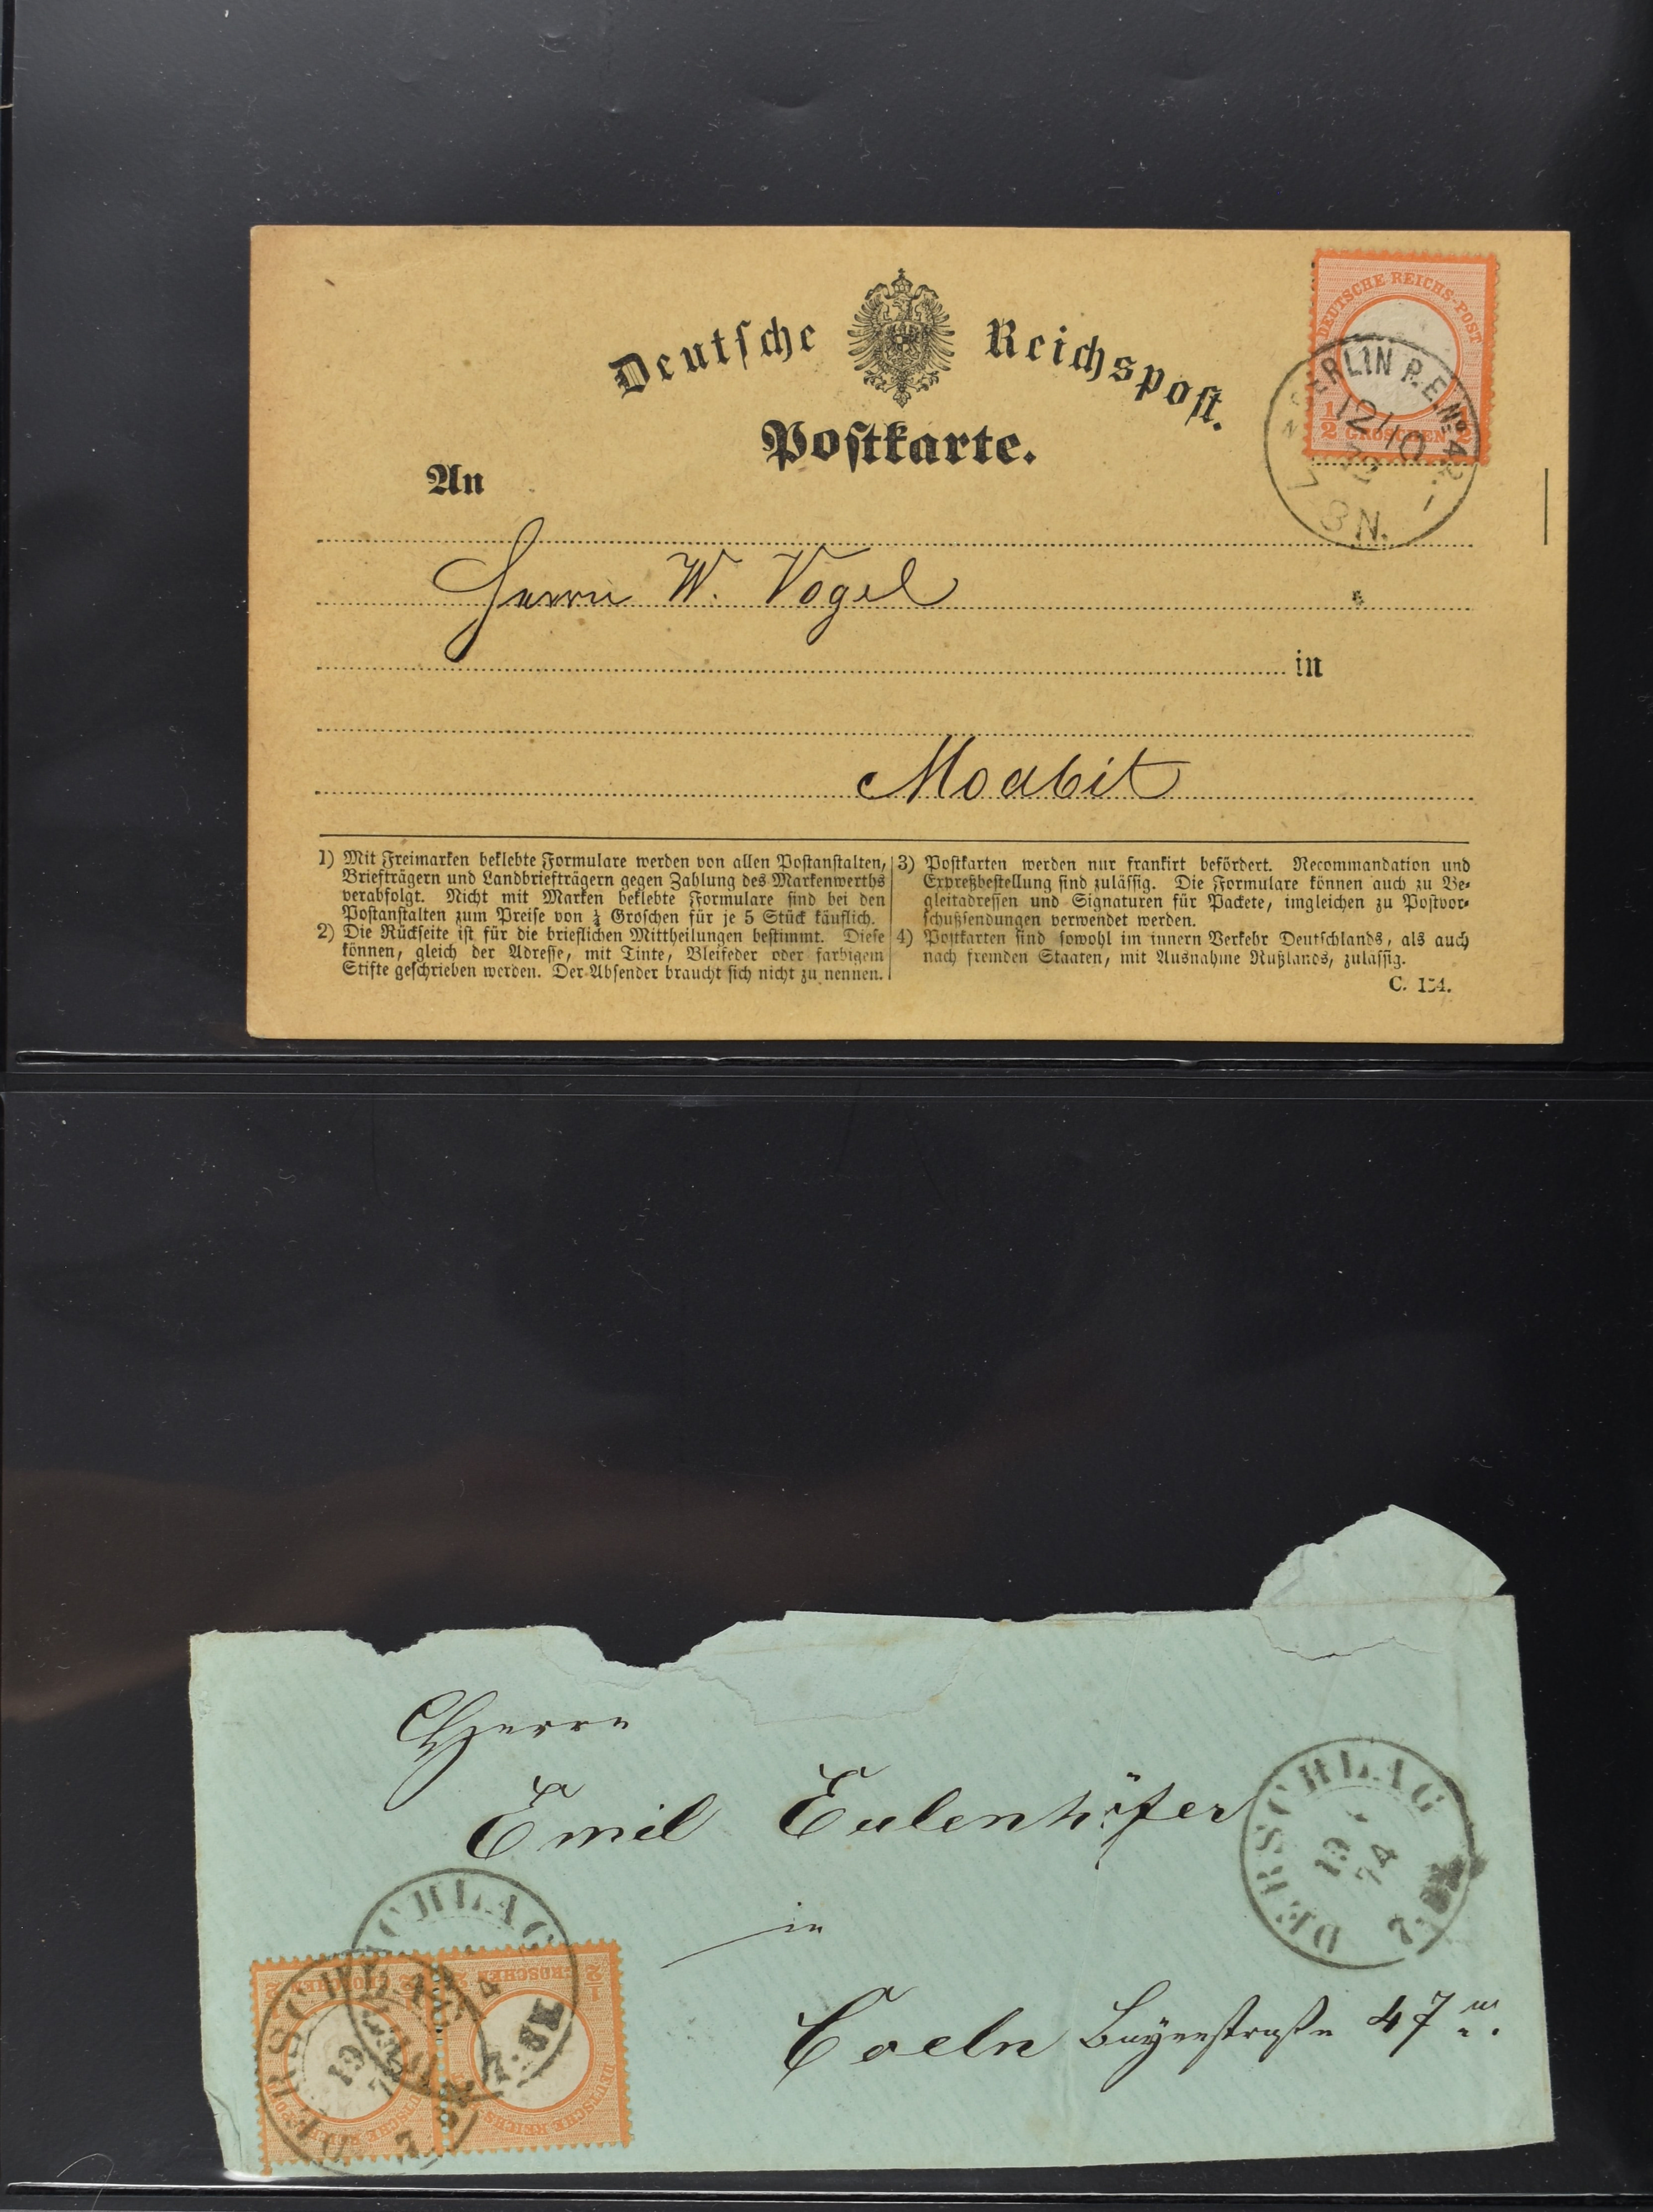 Deutsche Reichspost.
Postkarte.
DEUTSCHE REICHS-POST
1/2 GROSCHEN 1/2
BERLIN P.E. No 42.
12/10
72
7-8 N.
An
Herrn W. Vogel
in
Moabit
1) Mit Freimarken beklebte Formulare werden von allen Postanstalten,
Briefträgern und Landbriefträgern gegen Zahlung des Markenwerths
verabfolgt. Nicht mit Marken beklebte Formulare sind bei den
Postanstalten zum Preise von ¼ Groschen für je 5 Stück käuflich.
2) Die Rückseite ist für die brieflichen Mittheilungen bestimmt. Diese
können, gleich der Adresse, mit Tinte, Bleifeder oder farbigem
Stifte geschrieben werden. Der Absender braucht sich nicht zu nennen.
3) Postkarten werden nur frankirt befördert. Recommandation und
Expreßbestellung sind zulässig. Die Formulare können auch zu Be-
gleitadressen und Signaturen für Packete, imgleichen zu Postvor-
schußsendungen verwendet werden.
4) Postkarten sind sowohl im innern Verkehr Deutschlands, als auch
nach fremden Staaten, mit Ausnahme Rußlands, zulässig.
C. 154.
Herrn
Emil Eulenhöfer
DERSCHLAG
19
74
in
Coeln Bayenstraße 47
DERSCHLAG
19
DEUTSCHE REICHS-POST
1/2 GROSCHEN 1/2